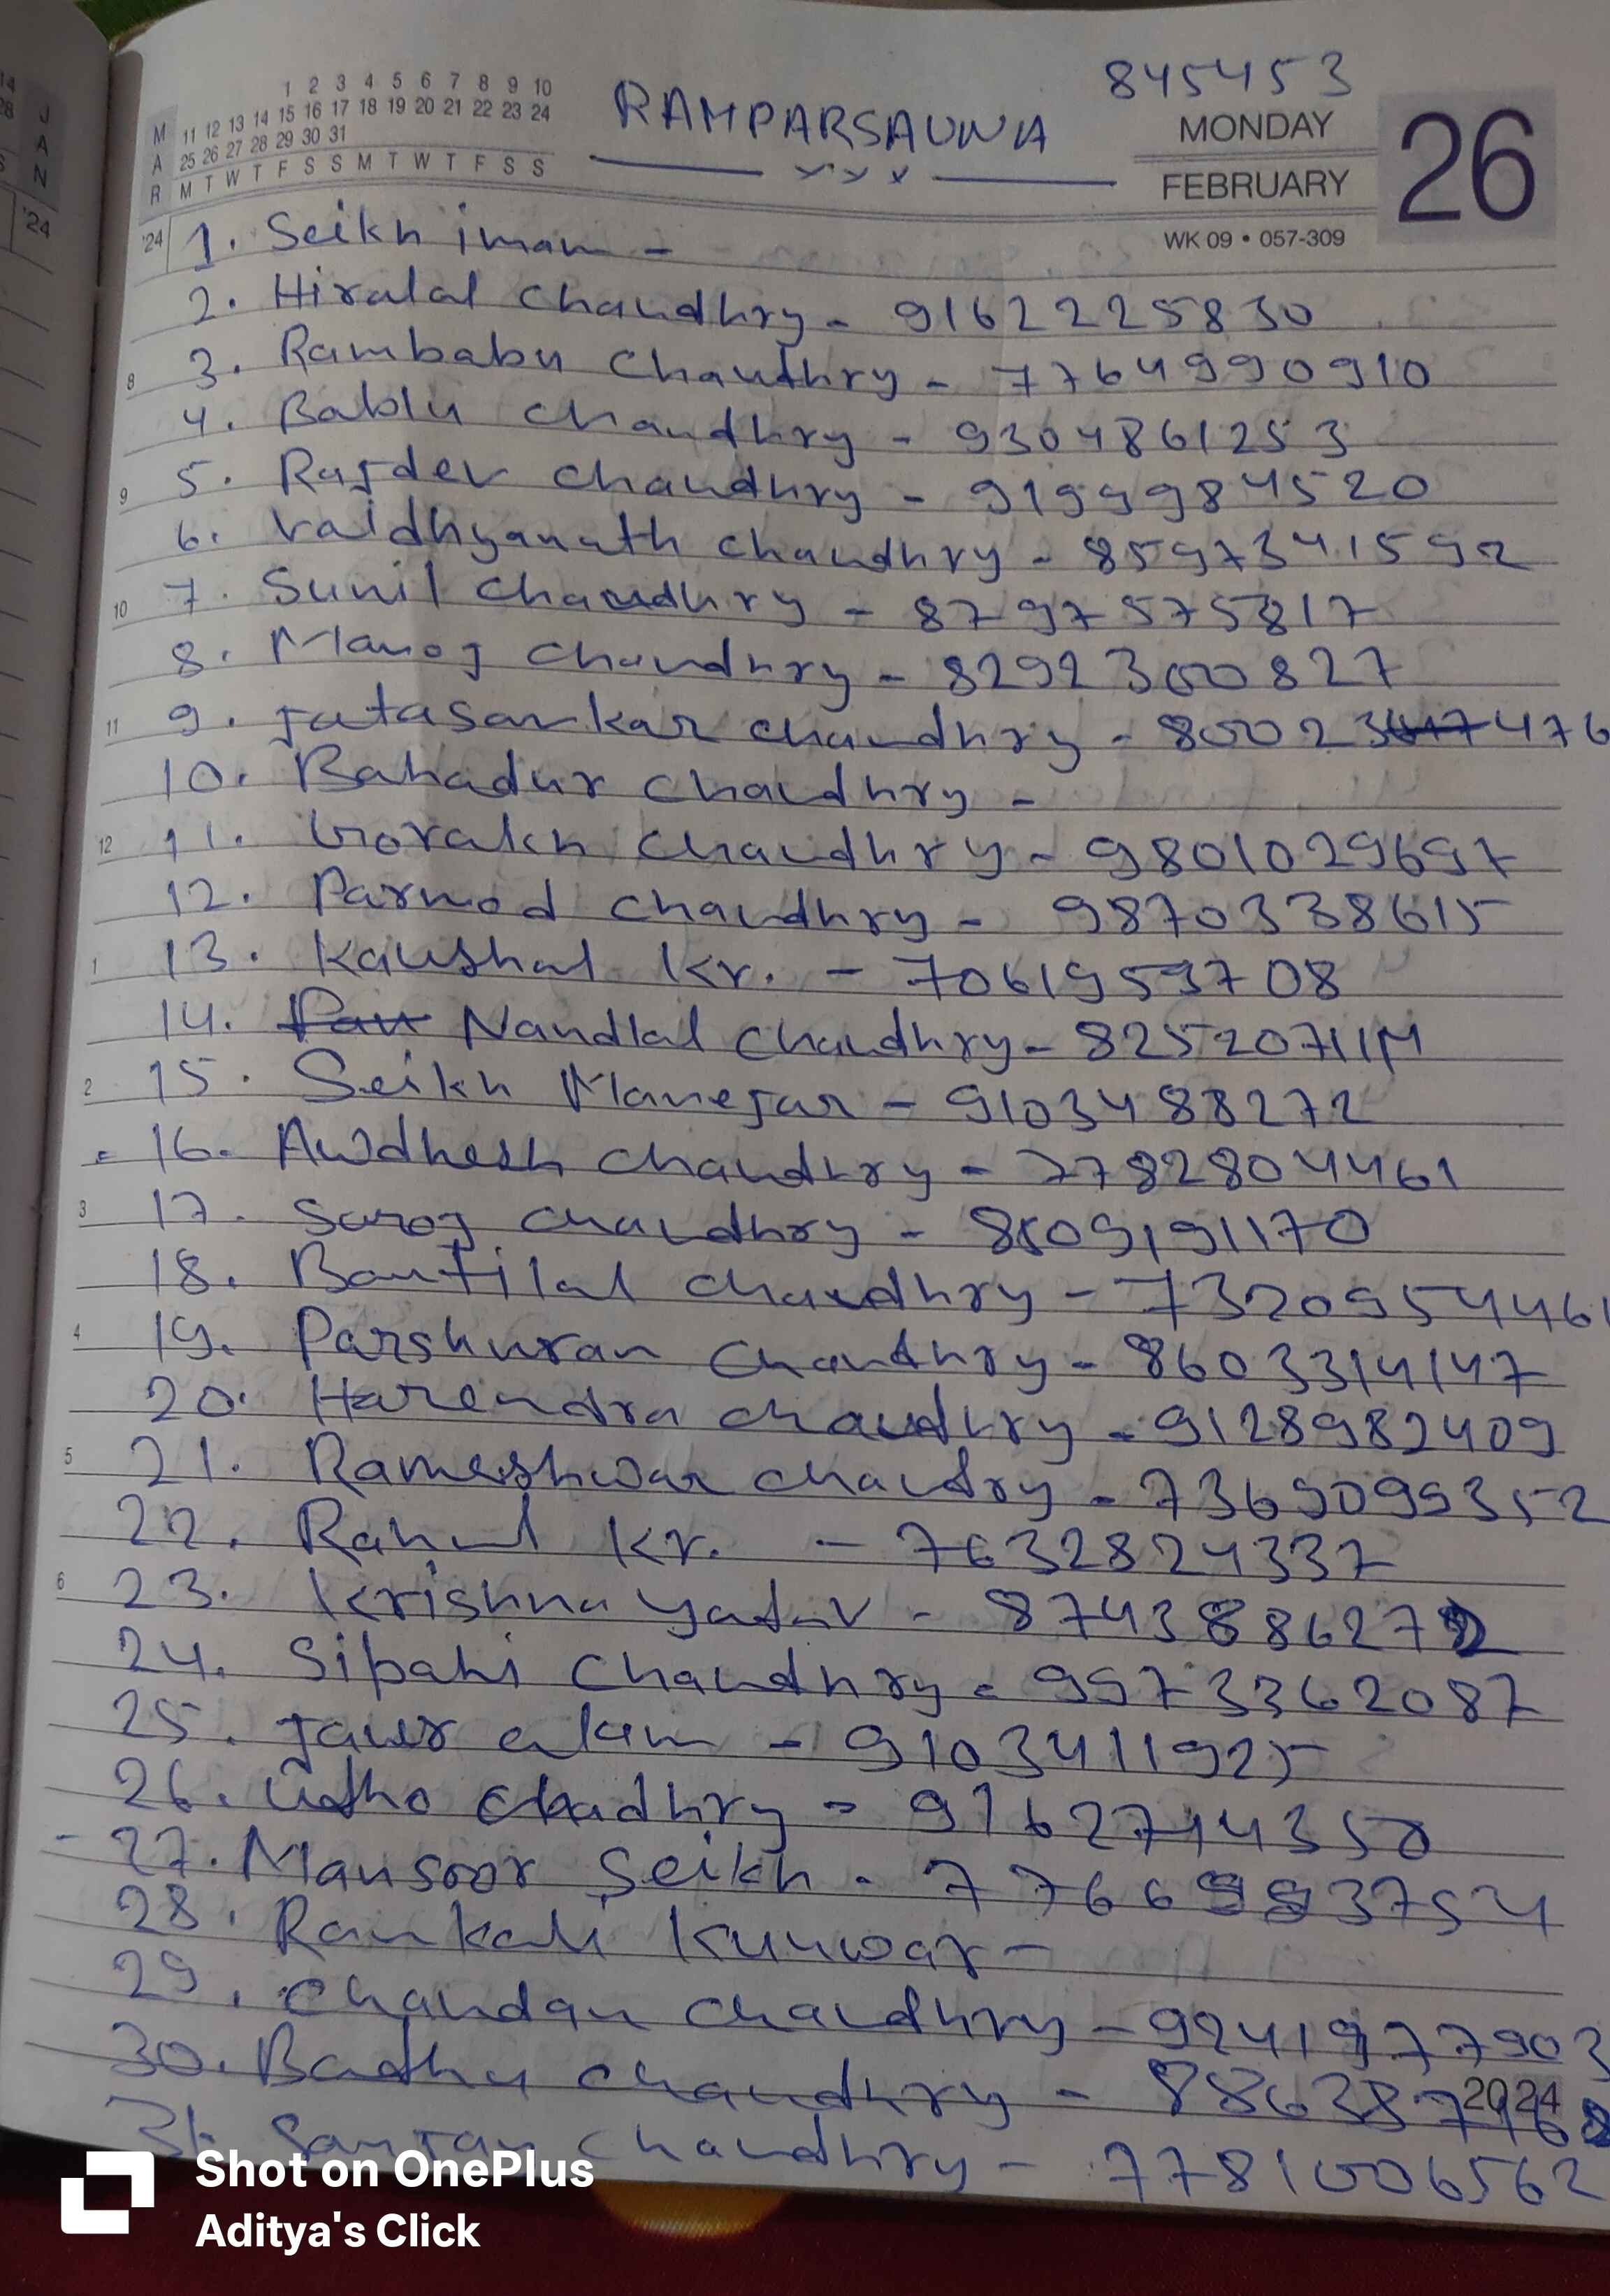 845453
1 2 3 4 5 6 7 8 9 10
RAMPARSAUNA
M 11 12 13 14 15 16 17 18 19 20 21 22 23 24
MONDAY
26
A 25 26 27 28 29 30 31
R M T W T F S S M T W T F S S
FEBRUARY
'24
WK 09 • 057-309
J
A
N
'24
1. Seikh imam -
2. Hiralal Chaudhry - 9162225830
8 3. Rambabu Chaudhry - 7764990910
4. Bablu Chaudhry - 9304861253
9 5. Rajdev Chaudhry - 9199984520
6. Vaidhyanath Chaudhry - 8597341592
10 7. Sunil Chaudhry - 8797575817
8. Manoj Chaudhry - 8292300827
11 9. Jatasankar Chaudhry - 80023 476
10. Bahadur Chaudhry -
12 11. Gorakh Chaudhry - 9801029697
12. Parmod Chaudhry - 9870338615
1 13. Kaushal Kr. - 7061959708
14. Nandlal Chaudhry -
2 15. Seikh Manejar - 9103488272
16. Awdhesh Chaudhry - 7782804461
3 17. Saroj Chaudhry - 8809191170
18. Chaudhry - 73209544461
4 19. Parshuram Chaudhry - 8603314147
20. Harendra Chaudhry - 9128982409
5 21. Rameshwar Chaudry - 7369099352
22. Rahul Kr. - 7632824337
6 23. Krishna Yadav - 8743886272
24. Sipahi Chaudhry - 9973362087
25. alam - 9103411925
26. Chadhry - 9162714350
27. Mansoor Seikh -
28. Ramkali Kunwar -
29. Chandan Chaudhry - 9241977903
30. Chaudhry -
2024
31. Chaudhry - 7781006562
Shot on OnePlus
Aditya's Click